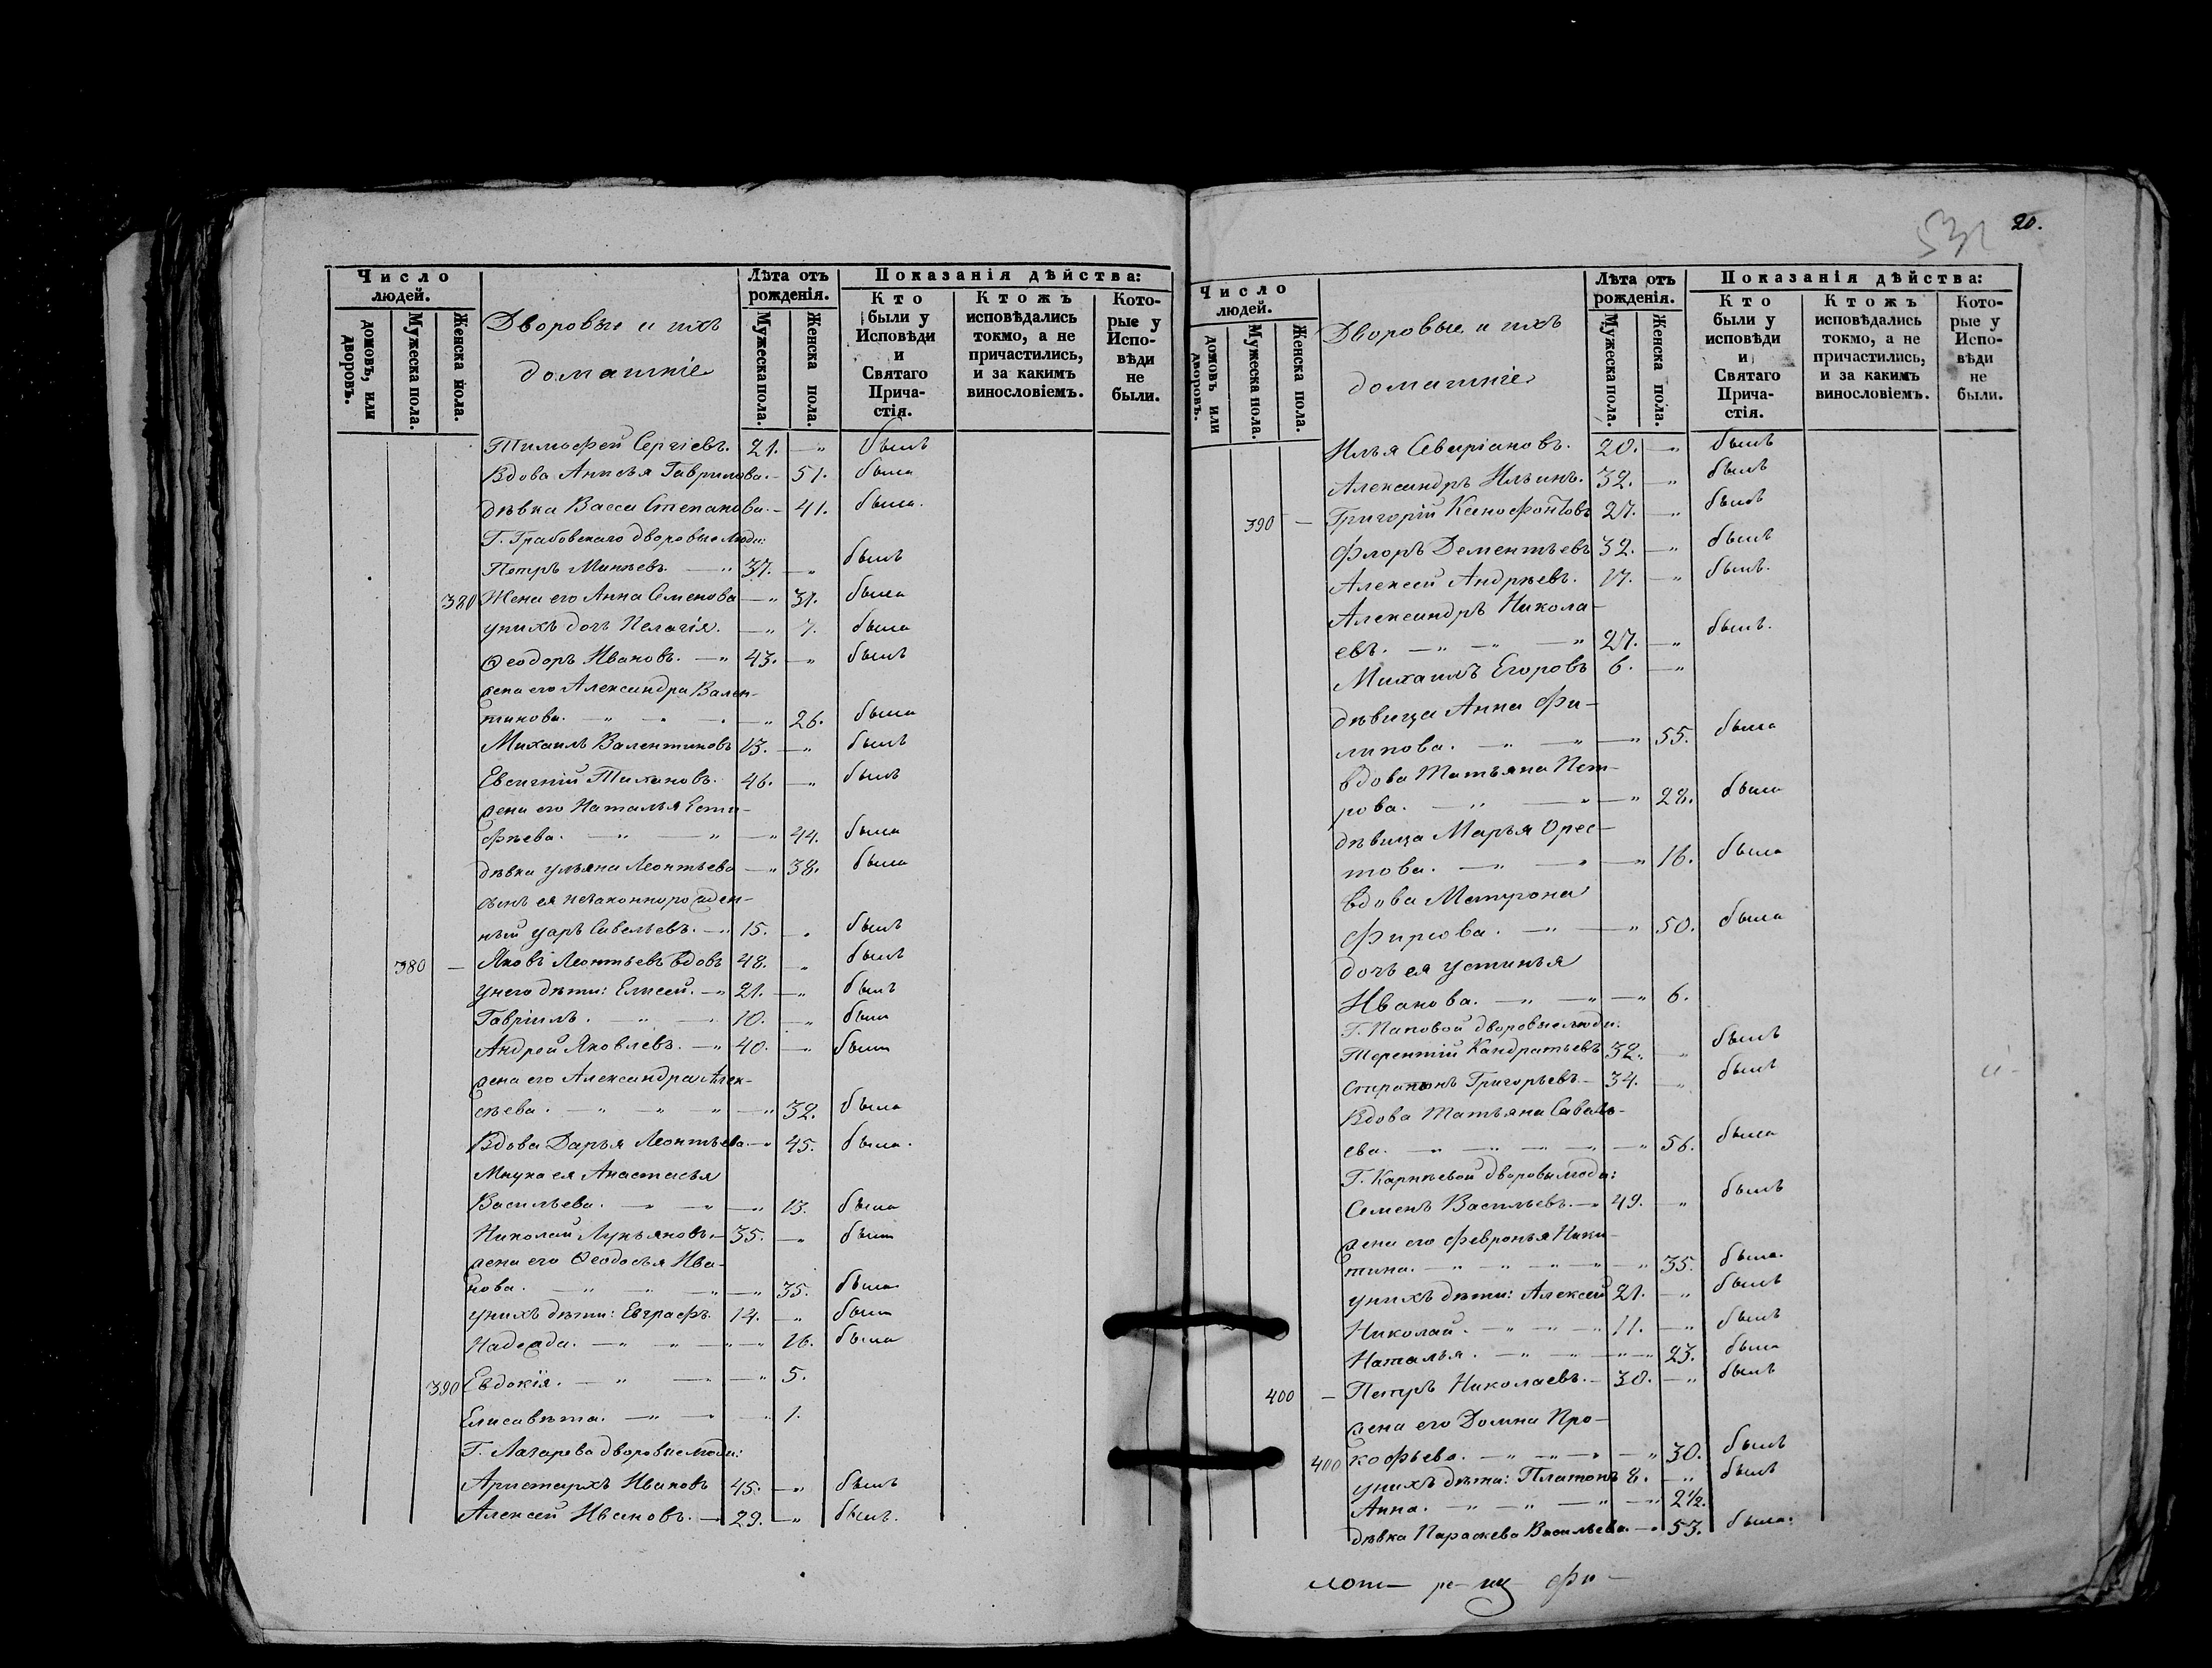 Число людей.
домовъ, или дворовъ.
Мужеска пола.
Женска пола.
Дворовые и ихъ
домашніе
Лѣта отъ рожденія.
Мужеска пола.
Женска пола.
Показанія дѣйства:
Кто были у Исповѣди и Святаго Прича-стія.
Ктожъ исповѣдались токмо, а не причастились, и за какимъ винословіемъ.
Кото-рые у Испо-вѣди не были.
Тимофей Сергіевъ. 21. — " былъ
Вдова Анисья Гаврилова. — 51. была
дѣвка Васса Степанова. — 41. была.
Г. Грабовскаго дворовые люди:
Петръ Минѣевъ. — " 37. — " былъ
380 Жена его Анна Семенова — " 31. была
у нихъ дочь Пелагія. — " 7. была
Ѳеодоръ Ивановъ. — " 43. — " былъ
жена его Александра Вален-
тинова. — " — " 26. была
Михаилъ Валентиновъ 13. — " былъ
Евсигній Тихановъ. 46. — " былъ
жена его Наталья Естиг-
фѣева. — " — " — " 44. была
дѣвка Ульяна Леонтьева — " 38. была
сынъ ея незаконнорожден-
ный Уаръ Савельевъ. — " 15. — " былъ
380 — Яковъ Леонтьевъ вдовъ 48. — " былъ
у него дѣти: Елисей. — " 21. — " былъ
Гавріилъ. — " — 10. — " былъ
Андрей Яковлевъ. — " 40. — " былъ
жена его Александра Алек-
сѣева. — " — " — " 32. была
Вдова Дарья Леонтьева — " 45. была.
Мнука ея Анастасья
Васильева. — " — " — " 13. была
Николай Лукьяновъ — 35. — " былъ
жена его Ѳеодосья Ива-
нова. — " — " — " 35. была
у нихъ дѣти: Евграфъ. 14. — " былъ
Надежда. — " — " — " 16. была
390 Евдокія. — " — " — " 5.
Елисавѣта. — " — " — " 1.
Г. Лазарева дворовые люди:
Аристархъ Ивановъ 45. — " былъ
Алексѣй Ивановъ. — 29. — " былъ.
20.
Число людей.
домовъ или дворовъ.
Мужеска пола.
Женска пола.
Дворовые и ихъ
домашніе
Лѣта отъ рожденія.
Мужеска пола.
Женска пола.
Показанія дѣйства:
Кто были у исповѣди и Святаго Прича-стія.
Ктожъ исповѣдались токмо, а не причастились, и за какимъ винословіемъ.
Кото-рые у Испо-вѣди не были.
Илья Севиріановъ. 20. — " былъ
Александръ Ильинъ. 32. — " былъ
390 — Григорій Ксенофонтовъ 27. — " былъ
Флоръ Дементьевъ 32. — " былъ
Алексей Андрѣевъ. 17. — " былъ.
Александръ Никола-
евъ. — " — " — " 27. — " былъ.
Михаилъ Егоровъ 6. — "
дѣвица Анна Фи-
липова. — " — " — " 55. была
вдова Татьяна Пет-
рова. — " — " — " 28. была
дѣвица Марья Орес-
това. — " — " — " 16. была
вдова Матрона
Фирсова. — " — " 50. была
дочь ея Устинья
Иванова. — " — " — " 6.
Г. Паповой дворовые люди:
Терентій Кандратьевъ 32. — " былъ
Стратонъ Григорьевъ — 34. — " былъ
Вдова Татьяна Савель-
ева. — " — " — " — " 56. была
Г. Карнѣевой дворовы люди:
Семенъ Васильевъ. — " 49. — " былъ
жена его Февронья Ники-
тина. — " — " — " — " 35. была.
у нихъ дѣти: Алексей 21. — " былъ
Николай. — " — " — " 11. — " былъ
Наталья. — " — " — " — " 23. была
400 — Петръ Николаевъ. — 30. — " былъ
жена его Домна Про-
400 кофьева. — " — " — " — " 30. былъ
у нихъ дѣти: Платонъ 8. — " былъ
Анна. — " — " — " — " 2 1/2.
дѣвка Параскева Васильева. — " 53. была.